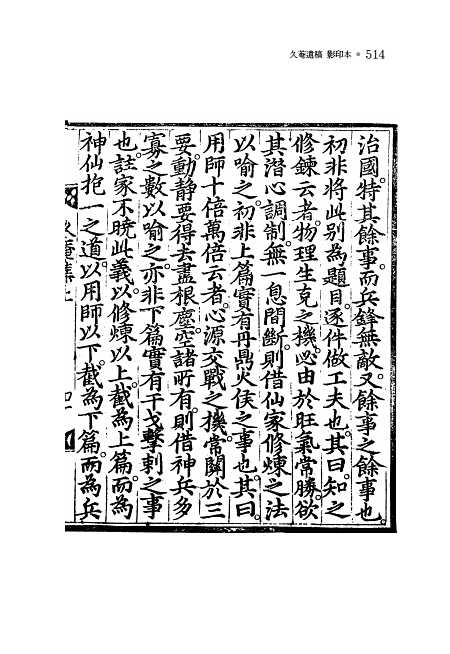 久菴遺稿 影印本 • 514
治國。特其餘事。而兵鋒無敵。又餘事之餘事也。
初非將此別為題目。逐件做工夫也。其曰。知之
修鍊云者。物理生克之機。必由於旺氣常勝。欲
其潛心調制。無一息間斷。則借仙家修煉之法
以喻之。初非上篇實有丹鼎火候之事也。其曰。
用師十倍萬倍云者。心源交戰之機。常關於三
要。動靜要得去盡根塵。空諸所有。則借神兵多
寡之數以喻之。亦非下篇實有干戈擊刺之事
也。註家不曉此義。以修煉以上。截為上篇。而為
神仙抱一之道。以用師以下。截為下篇。而為兵
久菴集上